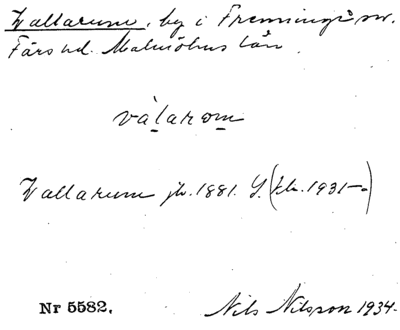 Vallarum, by i Fremninge sn.
Färs hd. Malmöhus län.
vàlarom
Vallarum jb. 1881. Y. (tb. 1931-)
Nr 5582.
Nils Nilsson 1934.